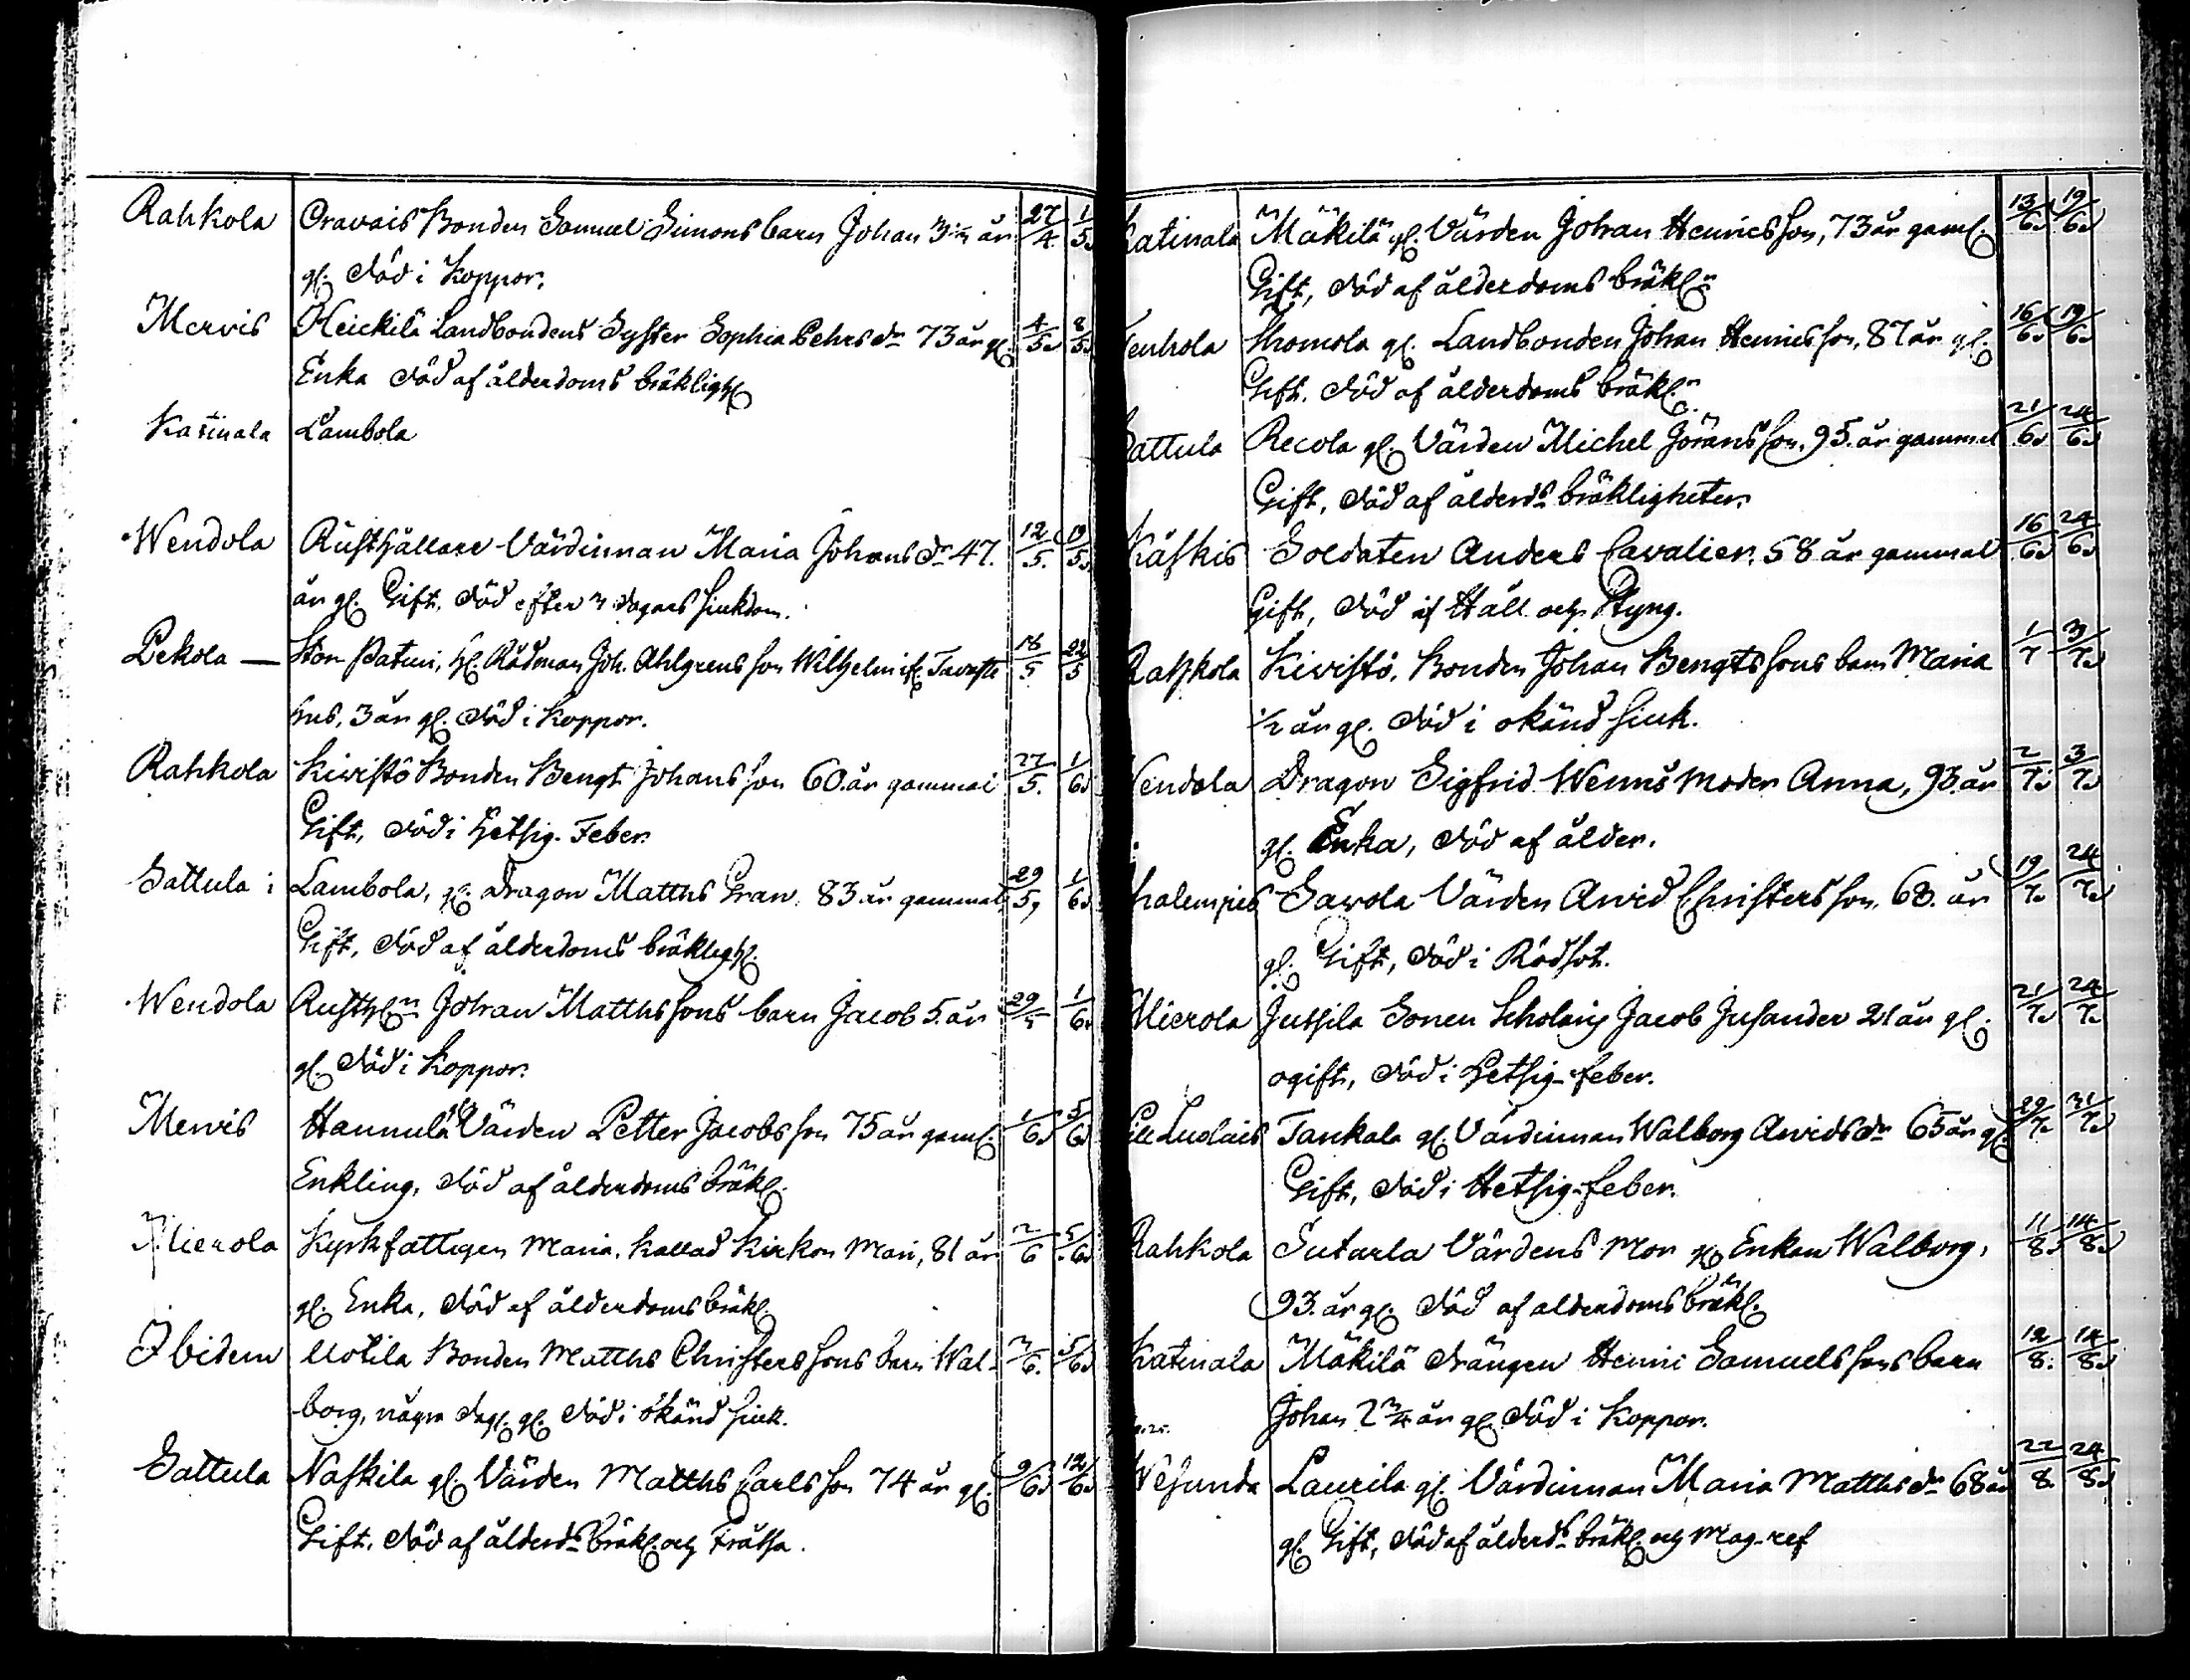 Rahkola Oravais Bonden Samuel Simons barn Johan 3 1/2 år 27/4 1/5
gl. död i Koppor.
Mervis Heickilä Landbondens Syster Sophia Pehrs dr 73 år gl. 4/5 8/5
Enka död af ålderdoms bräkligh.
Katinala Lambola
Wendola Rusthållare Värdinnan Maria Johans dr 47. 12/5. 19/5
år gl. Gift, död efter 3 dagars siukdom.
Pekola — Stor Patuni, Rådman Joh. Ahlgrens son Wilhelm Tavaste 18/5 22/5
hus, 3 år gl. död i Koppor.
Rahkola Kivistö Bonden Bengt Johans son 60. år gammal 27/5. 1/6
Gift, död i hetsig. Feber.
Sattula i Lambola, gl. Dragon Matths Gran. 83 år gammal, 29/5, 1/6
Gift, död af ålderdoms bräkligh.
Wendola Rusthn Johan Matths sons barn Jacob 5. år 29/5 1/6
gl. död i Koppor.
Mervis Hannula Värden Petter Jacobs son 75 år gaml. 1/6 5/6
Enkling, död af ålderdoms bräkl.
Mierola Kyrkfattigen Maria, kallad Kirkon Mari, 81 år 2/6 5/6
gl. Enka, död af ålderdoms bräkl.
Ibidem Uotila Bonden Matths Christers sons barn Wal- 3/6. 5/6
borg, några dag. gl. död i okänd siuk.
Sattula Naskila gl. Värden Matths Carls son 74 år gl. 9/6 12/6
Gift, död af ålderds bräkl. och Frätsa.
Katinala Mäkilä gl. Värden Johan Henrics son, 73 år gaml. 13/6 19/6
Gift, död af ålderdoms bräkl.
Tenhola Thomola gl. Landbonden Johan Henrics son, 87 år gl. 16/6 19/6
Gift. död af ålderdoms bräkl.
Sattula Recola gl. Värden Michel Görans son. 95. år gammal 21/6 24/6
Gift, död af ålderds bräkligheter.
Käskis Soldaten Anders Cavalier. 58 år gammal 16/6 24/6
Gift, död af Håll och Styng.
Rahkola Kivistö. Bonden Johan Bengts sons barn Maria 1/7 3/7
1/2 år gl. död i okänd siuk.
Wendola Dragon Sigfrid Wenns Moder Anna, 93. år 2/7 3/7
gl. Enka, död af ålder.
Ihalempies Sawola Värden Arvid Christers son. 68. år 19/7 24/7
gl. Gift, död i Rödsot.
Mierola Jussila Sonen Scholaris Jacob Jusander 21 år gl. 21/7 24/7
ogift, död i hetsig-feber.
Luolais Tankala gl. Värdinnan Walborg Arvids dr 65 år gl. 29/7 31/7
Gift, död i Hetsig-feber.
Rahkola Sutarla Värdens Mor Enkan Walborg, 11/8 14/8
93. år gl. död af alderdoms bräkl.
Katinala Mäkilä drängen Henric Samuels sons barn 12/8. 14/8
Johan 2 3/4 år gl. död i Koppor.
Wesunda Laurila gl. Värdinnan Maria Matths dr 68 år 22/8 24/8
gl. Gift, död af ålderds bräkl. och Mag-ref